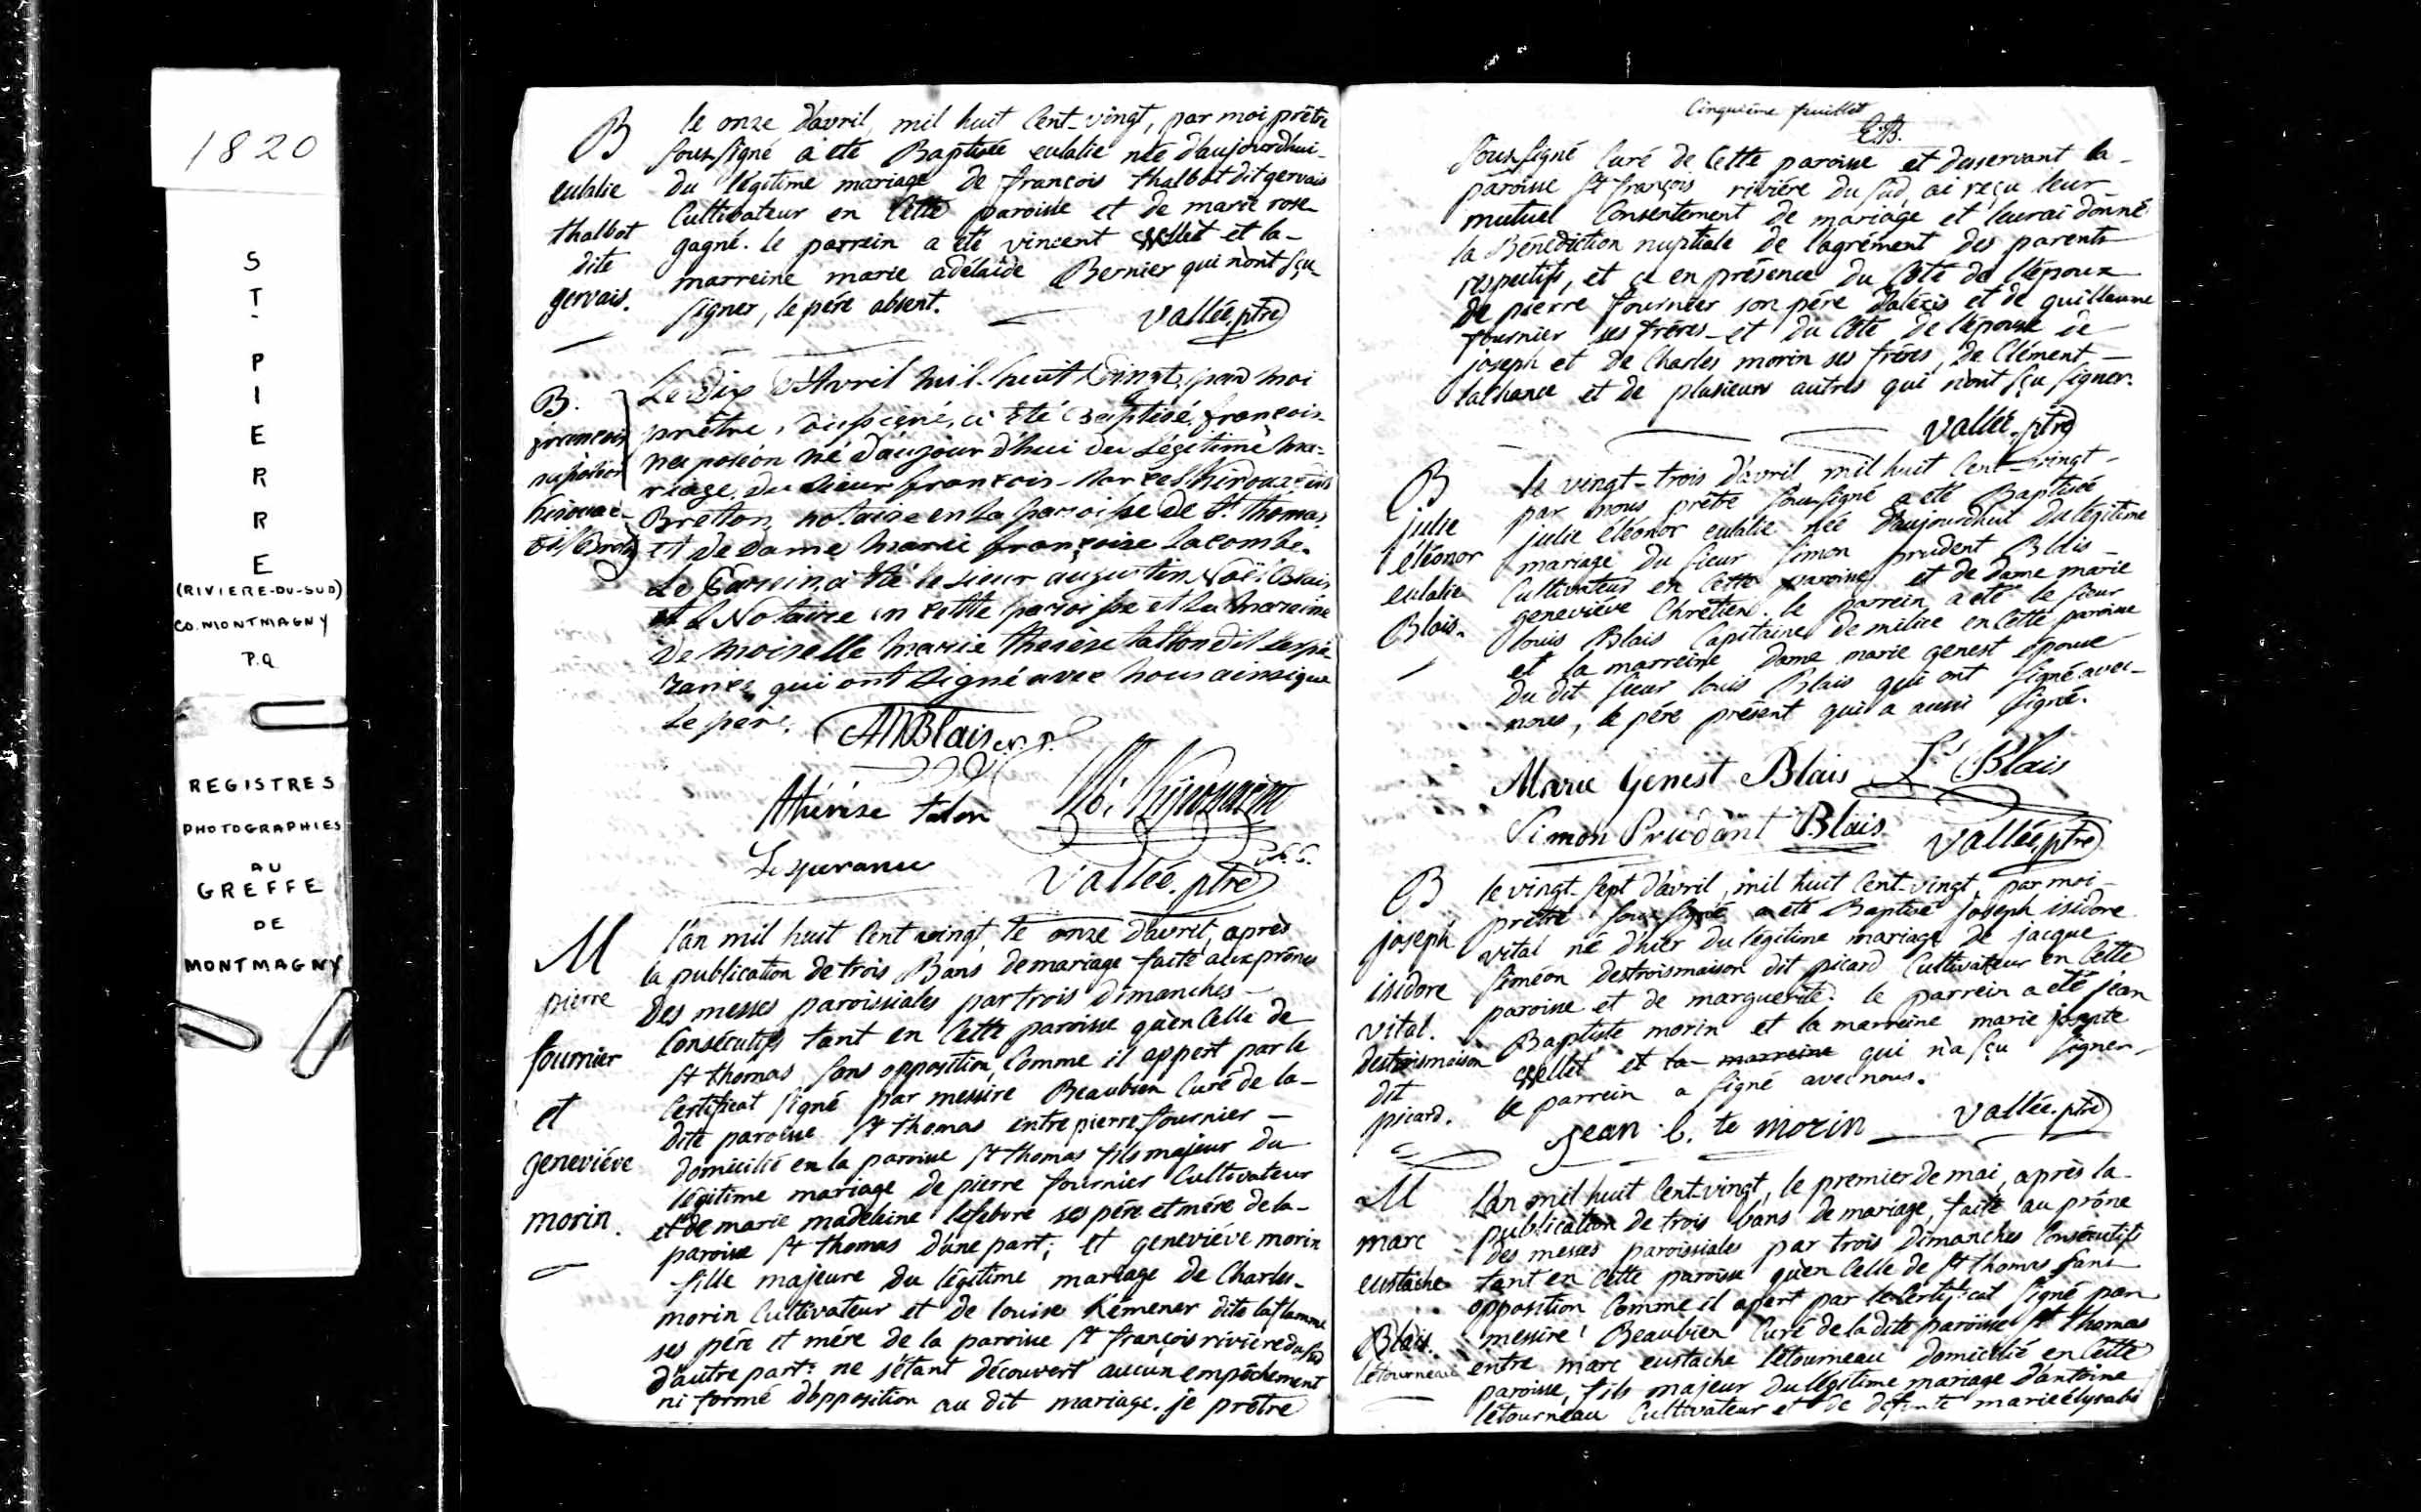 1820
ST. PIERRE
(RIVIERE-DU-SUD)
CO. MONTMAGNY
P.Q
REGISTRES
PHOTOGRAPHIES
AU
GREFFE
DE
MONTMAGNY
B
eulalie
thalbot
dite
gervais.
le onze d'avril, mil huit Cent-vingt, par moi prêtre
soussigné a été Baptisée eulalie née d'aujourdhui
du légitime mariage de françois thalbot dit gervais
Cultivateur en Cette paroisse et de marie rose
gagné. le parrein a été vincent et la
marreine marie adélaide Bernier qui n'ont sçu
signer, le père absent.
Vallée, ptre
B.
françois
napoléon
Le Dix d'Avril mil huit vingt, par moi
prêtre, soussigné, a été Baptisé, françois
né d'aujourd'hui du Légitime ma-
riage du Sieur françois dit
Breton, notaire en la paroisse de St. thomas,
et de Dame Marie françoise Lacombe.
Le Parrein, a été le Sieur augustin Noël Blais
Notaire en cette paroisse et la mareine
Demoiselle Marie therese tallon dit Lespe-
rance, qui ont signé avec nous ainsi que
le père.
Blais N. P.
thérèse talon
Lesperance
Vallée, ptre
M
pierre
fournier
et
geneviéve
morin.
l'an mil huit Cent vingt, le onze d'avril, après
la publication de trois Bans de mariage faite aux prônes
Des messes paroissiales par trois dimanches
Consécutifs tant en Cette paroisse qu'en Celle de
St thomas, sans opposition, Comme il appert par le
Certificat signé par messire Beaubien Curé de la
dite paroisse St thomas entre pierre fournier
domicilié en la paroisse St thomas fils majeur du
légitime mariage de pierre fournier Cultivateur
et de marie madelaine lefebvre ses pére et mére de la
paroisse St thomas d'une part; et geneviéve morin
fille majeure du légitime mariage de Charles
morin Cultivateur et de louise Kemener dite laflamme
ses pére et mére de la paroisse St françois riviére du sud
d'autre part: ne s'étant découvert aucun empêchement
ni formé d'opposition au dit mariage. je prêtre
Cinquième feuillet
E.B.
soussigné Curé de Cette paroisse et desservant la
paroisse St françois riviére du sud, ai reçu leur
mutuel Consentement de mariage et leur ai donné
la Bénédiction nuptiale de l'agrément des parents
respectifs, et ce en présence du Côté de l'époux
de pierre fournier son pére d'alexis et de guillaume
fournier ses fréres et du Côté de l'épouse de
joseph et de Charles morin ses fréres, de Clément
lachance et de plusieurs autres qui n'ont sçu signer.
Vallée, ptre
B
julie
éléonor
eulalie
Blais.
le vingt-trois d'avril mil huit Cent-vingt
par nous prêtre soussigné a été Baptisée
julie éléonor eulalie née d'aujourdhui du légitime
mariage du sieur simon prudent Blais
Cultivateur en Cette paroisse et de dame marie
geneviéve Chrétien. le parrein a été le sieur
louis Blais Capitaine de milice en Cette paroisse
et la marreine dame marie genest épouse
du dit sieur louis Blais qui ont signé avec
nous, le pére présent qui a aussi signé.
Marie Genest Blais Ls Blais
Simon Prudant Blais Vallée, ptre
B
joseph
isidore
vital.
destroismaison
dit
picard.
le vingt-sept d'avril, mil huit Cent-vingt, par moi
prêtre soussigné a été Baptisé joseph isidore
vital né d'hier du légitime mariage de jacque
siméon destroismaison dit picard Cultivateur en Cette
paroisse et de marguerite. le parrein a été jean
Baptiste morin et la marreine marie josepte
et la marreine qui n'a sçu signer,
le parrein a signé avec nous.
jean b. te morin Vallée. ptre
M
marc
eustache
Blais.
létourneau
l'an mil huit Cent-vingt, le premier de mai, après la
publication de trois bans de mariage, faite au prône
des messes paroissiales par trois dimanches Consécutifs
tant en Cette paroisse qu'en Celle de St thomas sans
opposition Comme il apert par le Certificat signé par
messire Beaubien Curé de la dite paroisse St thomas
entre marc eustache létourneau domicilié en Cette
paroisse, fils majeur du légitime mariage d'antoine
létourneau Cultivateur et de défunte marie élysabé